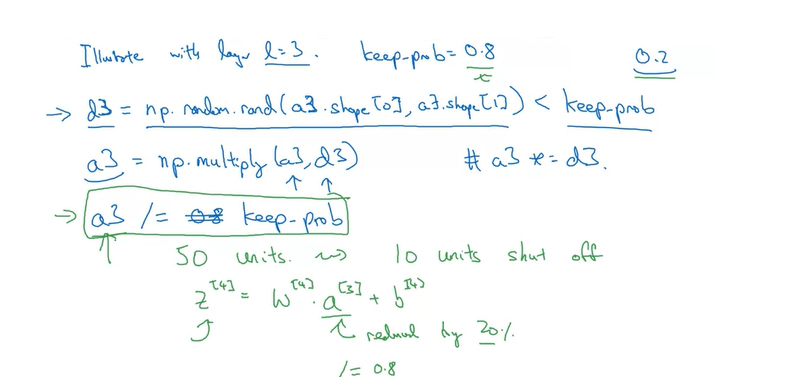 Illustrate with layer l=3. keep-prob= 0.8 0.2
→ d3 = np.random.rand(a3.shape[0], a3.shape[1]) < keep-prob
a3 = np.multiply(a3, d3) # a3 *= d3.
→ a3 /= 0.8 keep-prob
50 units. ⇝ 10 units shut off
z^[4] = W^[4] · a^[3] + b^[4]
reduced by 20%.
/= 0.8